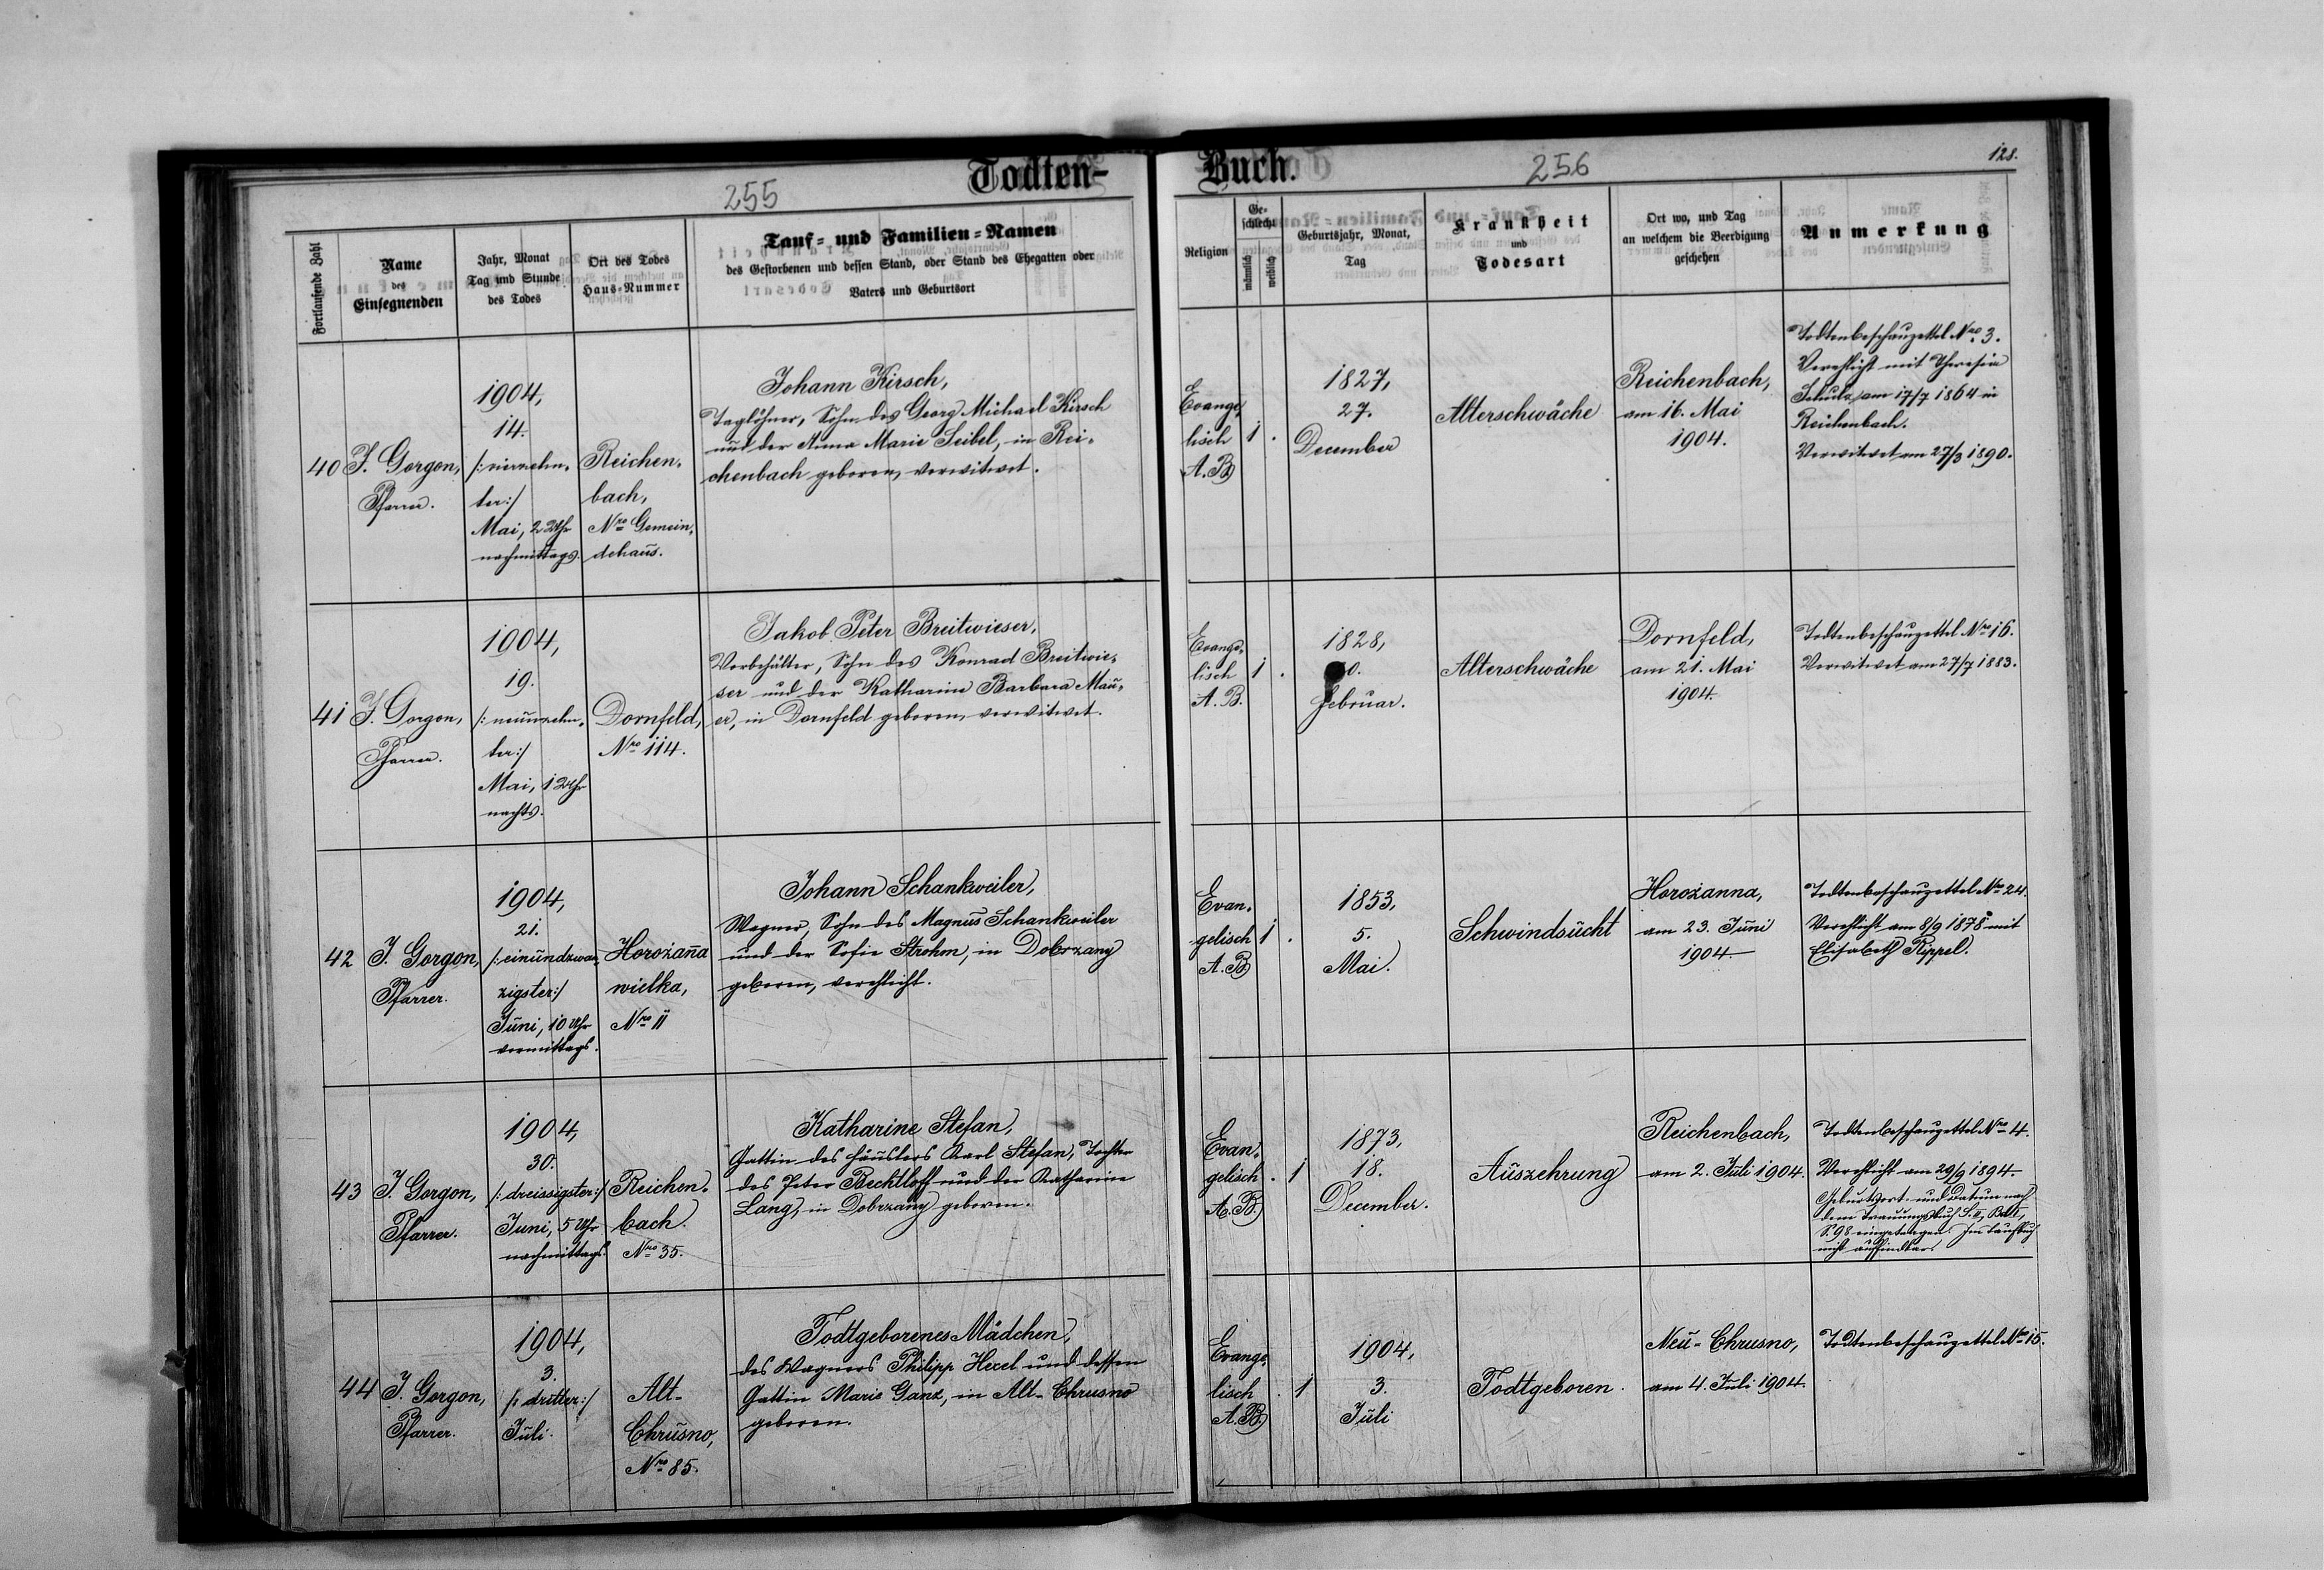 255
Todten-
Buch.
256
128.
Fortlaufende Zahl
Name
des
Einsegnenden
Jahr, Monat
Tag und Stunde
des Todes
Ort des Todes
Haus-Nummer
Tauf- und Familien-Namen
des Gestorbenen und dessen Stand, oder Stand des Ehegatten oder
Vaters und Geburtsort
Religion
Ge-
schlecht
männlich
weiblich
Geburtsjahr, Monat,
Tag
Krankheit
und
Todesart
Ort wo, und Tag
an welchem die Beerdigung
geschehen
Anmerkung
40
J. Gorgon,
Pfarrer.
1904,
14.
/: vierzehn-
ter:/
Mai, 2 Uhr
nachmittags.
Reichen-
bach,
Nro Gemein-
dehaus.
Johann Kirsch,
Taglöhner, Sohn des Georg Michael Kirsch
und der Anna Marie Seibel, in Rei-
chenbach geboren, verwitwet.
Evange-
lisch
A. B.
1 .
1827,
27.
December
Alterschwäche
Reichenbach,
am 16. Mai
1904.
Todtenbeschauzettel Nro 3.
Verehlicht mit Theresia
Schulz am 17/7 1864 in
Reichenbach.
Verwitwet am 27/3 1890.
41
J. Gorgon,
Pfarrer.
1904,
19.
/: neunzehn-
ter:/
Mai, 1 Uhr
nachts.
Dornfeld,
Nro 114.
Jakob Peter Breitwieser,
Vorbehälter, Sohn des Konrad Breitwie-
ser und der Katharine Barbara Mau-
er, in Dornfeld geboren, verwitwet.
Evange-
lisch
A. B.
1 .
1828,
0.
Februar.
Alterschwäche
Dornfeld,
am 21. Mai
1904.
Todtenbeschauzettel Nro 16.
Verwitwet am 27/7 1883.
42
J. Gorgon,
Pfarrer.
1904,
21.
/: einundzwan-
zigster:/
Juni, 10 Uhr
vormittags.
Horożanna
wielka,
Nro 11
Johann Schankweiler,
Wagner, Sohn des Magnus Schankweiler
und der Sofie Strohm, in Dobrzany
geboren, verehlicht.
Evan-
gelisch
A. B.
1 .
1853,
5.
Mai.
Schwindsucht
Horożanna,
am 23. Juni
1904.
Todtenbeschauzettel Nro 24.
Verehlicht am 8/9 1878 mit
Elisabeth Rippel.
43
J. Gorgon,
Pfarrer.
1904,
30.
/: dreissigster:/
Juni, 5 Uhr
nachmittags.
Reichen-
bach.
Nro 35.
Katharine Stefan,
Gattin des Häuslers Karl Stefan, Tochter
des Peter Bechtloff und der Katharine
Lang, in Dobrzany geboren.
Evan-
gelisch
A. B.
. 1
1873,
18.
December.
Auszehrung
Reichenbach,
am 2. Juli 1904.
Todtenbeschauzettel Nro 4.
Verehlicht am 29/9 1894.
Geburtsort und Datum nach
dem Trauungsbuch
S. 98 eingetragen. Im Taufbuch
nicht auffindbar.
44
J. Gorgon,
Pfarrer.
1904,
3.
/: dritter:/
Juli.
Alt-
Chrusno,
Nro 85.
Todtgeborenes Mädchen,
des Wagners Philipp Hexel und dessen
Gattin Marie Ganz, in Alt-Chrusno
geboren.
Evange-
lisch
A. B.
. 1
1904,
3.
Juli
Todtgeboren.
Neu-Chrusno,
am 4. Juli 1904.
Todtenbeschauzettel Nro 15.